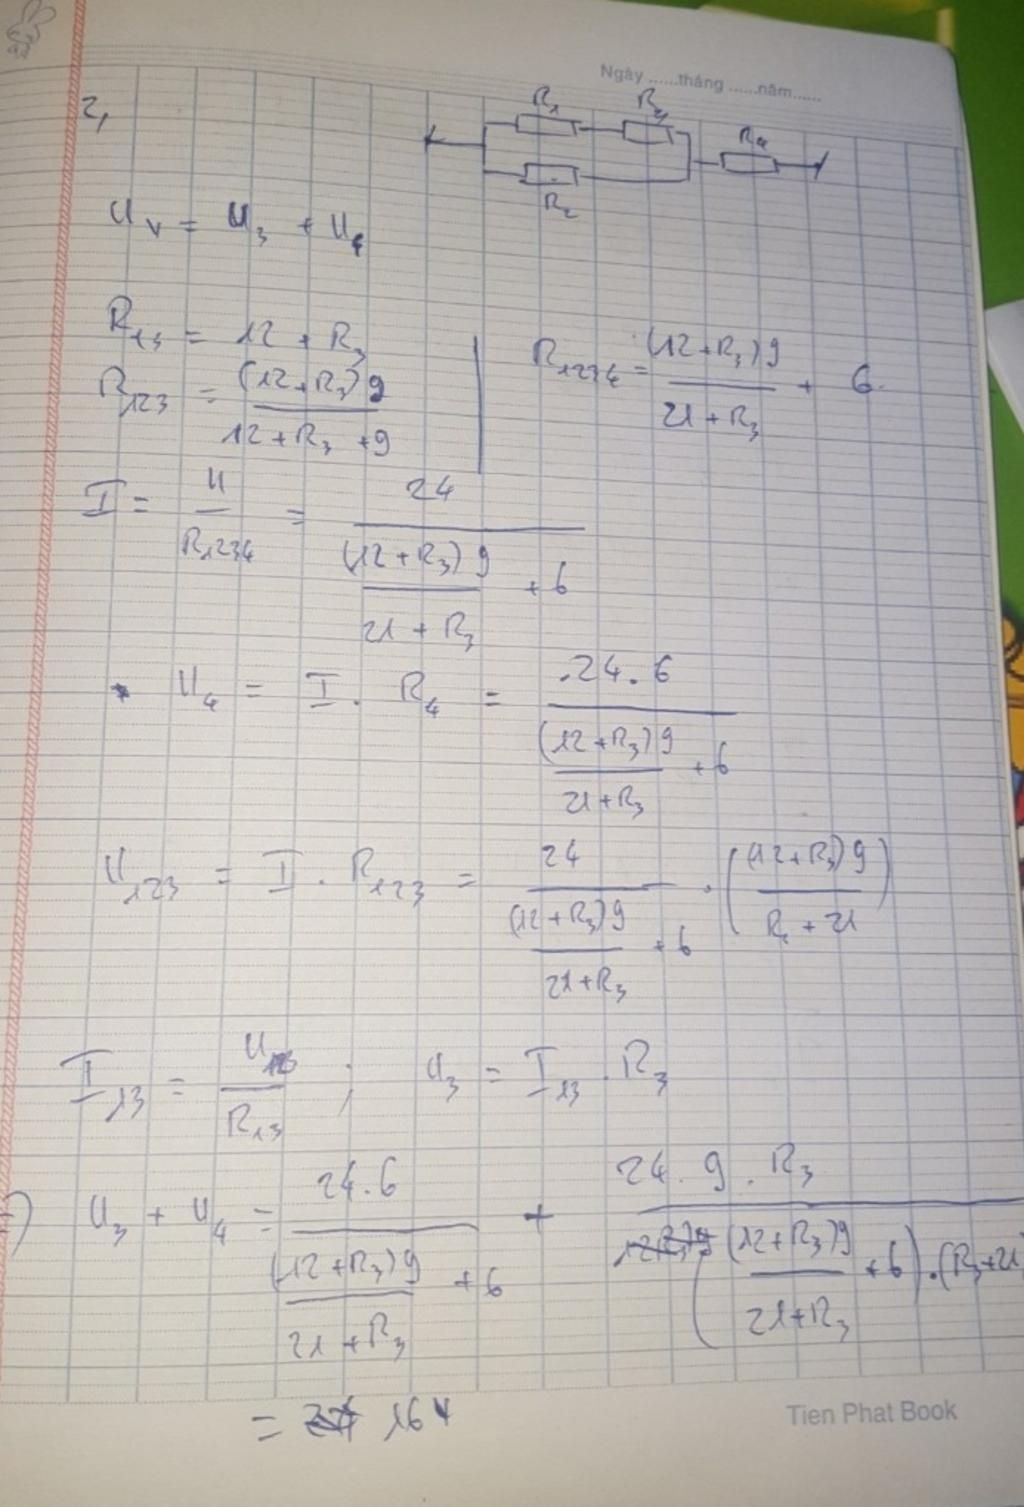 Ngày ......tháng ......năm......
2,
R₁ R₃ R₄
R₂
U_V = U₃ + U₄
R₁₃ = 12 + R₃
R₁₂₃ = (12+R₃)9 / (12+R₃+9)
R₁₂₃₄ = (12+R₃)9 / (21+R₃) + 6
I = U / R₁₂₃₄ = 24 / ((12+R₃)9 / (21+R₃) + 6)
* U₄ = I . R₄ = 24.6 / ((12+R₃)9 / (21+R₃) + 6)
U₁₂₃ = I . R₁₂₃ = 24 / ((12+R₃)9 / (21+R₃) + 6) . ((12+R₃)9 / (R₃+21))
I₁₃ = U₁₂₃ / R₁₃ ; U₃ = I₁₃ . R₃
U₃ + U₄ = 24.6 / ((12+R₃)9 / (21+R₃) + 6) + 24.9.R₃ / (((12+R₃)9 / (21+R₃) + 6).(R₃+21)
= 16V
Tien Phat Book